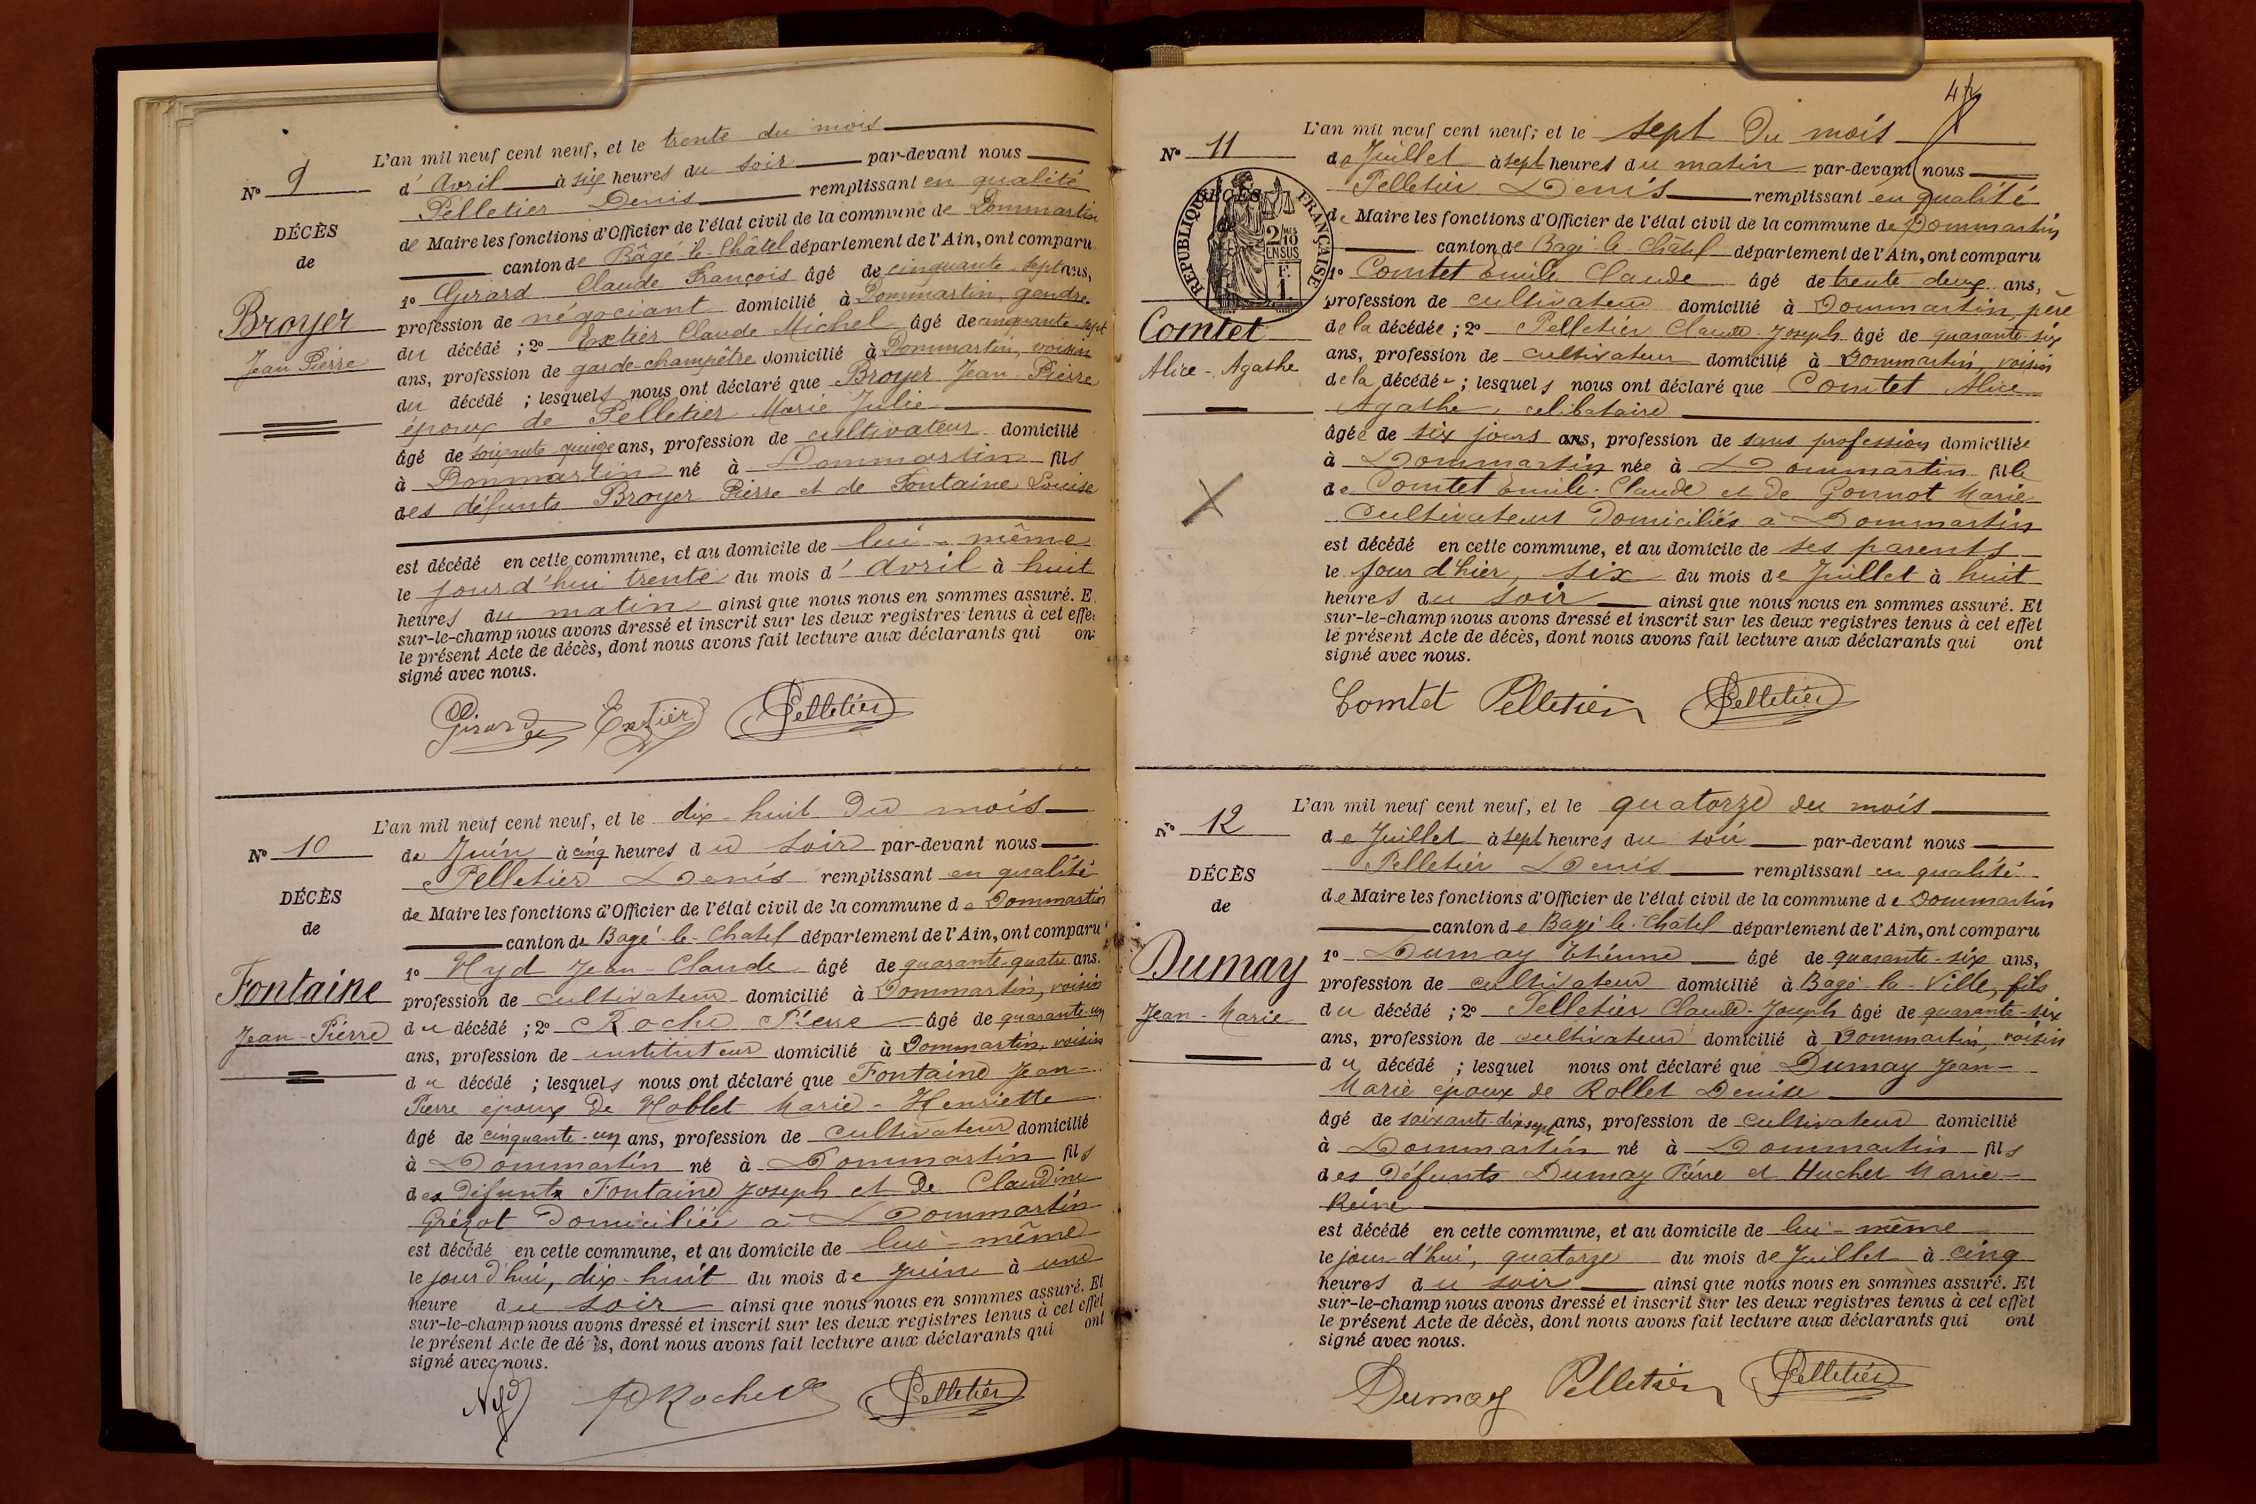 L'an mil neuf cent neuf, et le trente du mois
N° 9
d'Avril à six heures du soir par-devant nous
Pelletier Denis remplissant en qualité
DÉCÈS
de Maire les fonctions d'Officier de l'état civil de la commune de Dommartin
de
canton de Bâgé-le-Châtel département de l'Ain, ont comparu
1° Girard Claude François âgé de cinquante-sept ans,
Broyer
profession de négociant domicilié à Dommartin, gendre
du décédé ; 2° Extier Claude Michel âgé de cinquante-sept
Jean Pierre
ans, profession de garde-champêtre domicilié à Dommartin, voisin
du décédé ; lesquels nous ont déclaré que Broyer Jean-Pierre
époux de Pelletier Marie Julie
âgé de soixante quinze ans, profession de cultivateur domicilié
à Dommartin né à Dommartin fils
des défunts Broyer Pierre et de Fontaine Louise
est décédé en cette commune, et au domicile de lui-même
le jourd'hui trente du mois d'Avril à huit
heures du matin ainsi que nous nous en sommes assuré. E
sur-le-champ nous avons dressé et inscrit sur les deux registres tenus à cet effe
le présent Acte de décès, dont nous avons fait lecture aux déclarants qui on
signé avec nous.
Girard Extier Pelletier
L'an mil neuf cent neuf, et le dix-huit du mois
N° 10
de Juin à cinq heures du soir par-devant nous
Pelletier Denis remplissant en qualité
DÉCÈS
de Maire les fonctions d'Officier de l'état civil de la commune de Dommartin
de
canton de Bagé-le-Chatel département de l'Ain, ont comparu
1° Nyd Jean-Claude âgé de quarante-quatre ans.
Fontaine
profession de cultivateur domicilié à Dommartin, voisin
Jean-Pierre
du décédé ; 2° Roche Pierre âgé de quarante-un
ans, profession de instituteur domicilié à Dommartin, voisin
du décédé ; lesquels nous ont déclaré que Fontaine Jean-
Pierre époux de Noblet Marie-Henriette
âgé de cinquante-un ans, profession de cultivateur domicilié
à Dommartin né à Dommartin fils
des défunts Fontaine Joseph et de Claudine
Grézot domiciliée à Dommartin
est décédé en cette commune, et au domicile de lui-même
le jourd'hui, dix-huit du mois de Juin à une
heure du soir ainsi que nous nous en sommes assuré. Et
sur-le-champ nous avons dressé et inscrit sur les deux registres tenus à cet effet
le présent Acte de décès, dont nous avons fait lecture aux déclarants qui ont
signé avec nous.
Nyd Roche Pelletier
L'an mil neuf cent neuf, et le sept du mois
N° 11
de Juillet à sept heures du matin par-devant nous
Pelletier Denis remplissant en qualité
RÉPUBLIQUE FRANÇAISE
2/10 EN SUS
de Maire les fonctions d'Officier de l'état civil de la commune de Dommartin
canton de Bagé-le-Châtel département de l'Ain, ont comparu
1° Comtet Emile Claude âgé de trente deux ans,
profession de cultivateur domicilié à Dommartin, père
Comtet
de la décédée ; 2° Pelletier Claude-Joseph âgé de quarante-six
Alice-Agathe
ans, profession de cultivateur domicilié à Dommartin, voisin
de la décédée ; lesquels nous ont déclaré que Comtet Alice
Agathe, celibataire
âgée de six jours ans, profession de sans profession domiciliée
à Dommartin née à Dommartin fille
de Comtet Emile-Claude et de Gonnot Marie
cultivateurs domiciliés à Dommartin
est décédé en cette commune, et au domicile de ses parents
le jour d'hier, six du mois de Juillet à huit
heures du soir ainsi que nous nous en sommes assuré. Et
sur-le-champ nous avons dressé et inscrit sur les deux registres tenus à cet effet
le présent Acte de décès, dont nous avons fait lecture aux déclarants qui ont
signé avec nous.
Comtet Pelletier Pelletier
L'an mil neuf cent neuf, et le quatorze du mois
N° 12
de Juillet à sept heures du soir par-devant nous
Pelletier Denis remplissant en qualité
DÉCÈS
de Maire les fonctions d'Officier de l'état civil de la commune de Dommartin
de
canton de Bagé-le-Châtel département de l'Ain, ont comparu
1° Dumay Etienne âgé de quarante-six ans,
Dumay
profession de cultivateur domicilié à Bagé-la-Ville, fils
Jean-Marie
du décédé ; 2° Pelletier Claude-Joseph âgé de quarante-six
ans, profession de cultivateur domicilié à Dommartin, voisin
du décédé ; lesquel nous ont déclaré que Dumay Jean-
Marie époux de Rollet Denise
âgé de soixante-dix sept ans, profession de cultivateur domicilié
à Dommartin né à Dommartin fils
des défunts Dumay Pierre et Huchet Marie-
Reine
est décédé en cette commune, et au domicile de lui-même
le jour d'hui, quatorze du mois de Juillet à cinq
heures du soir ainsi que nous nous en sommes assuré. Et
sur-le-champ nous avons dressé et inscrit sur les deux registres tenus à cet effet
le présent Acte de décès, dont nous avons fait lecture aux déclarants qui ont
signé avec nous.
Dumay Pelletier Pelletier